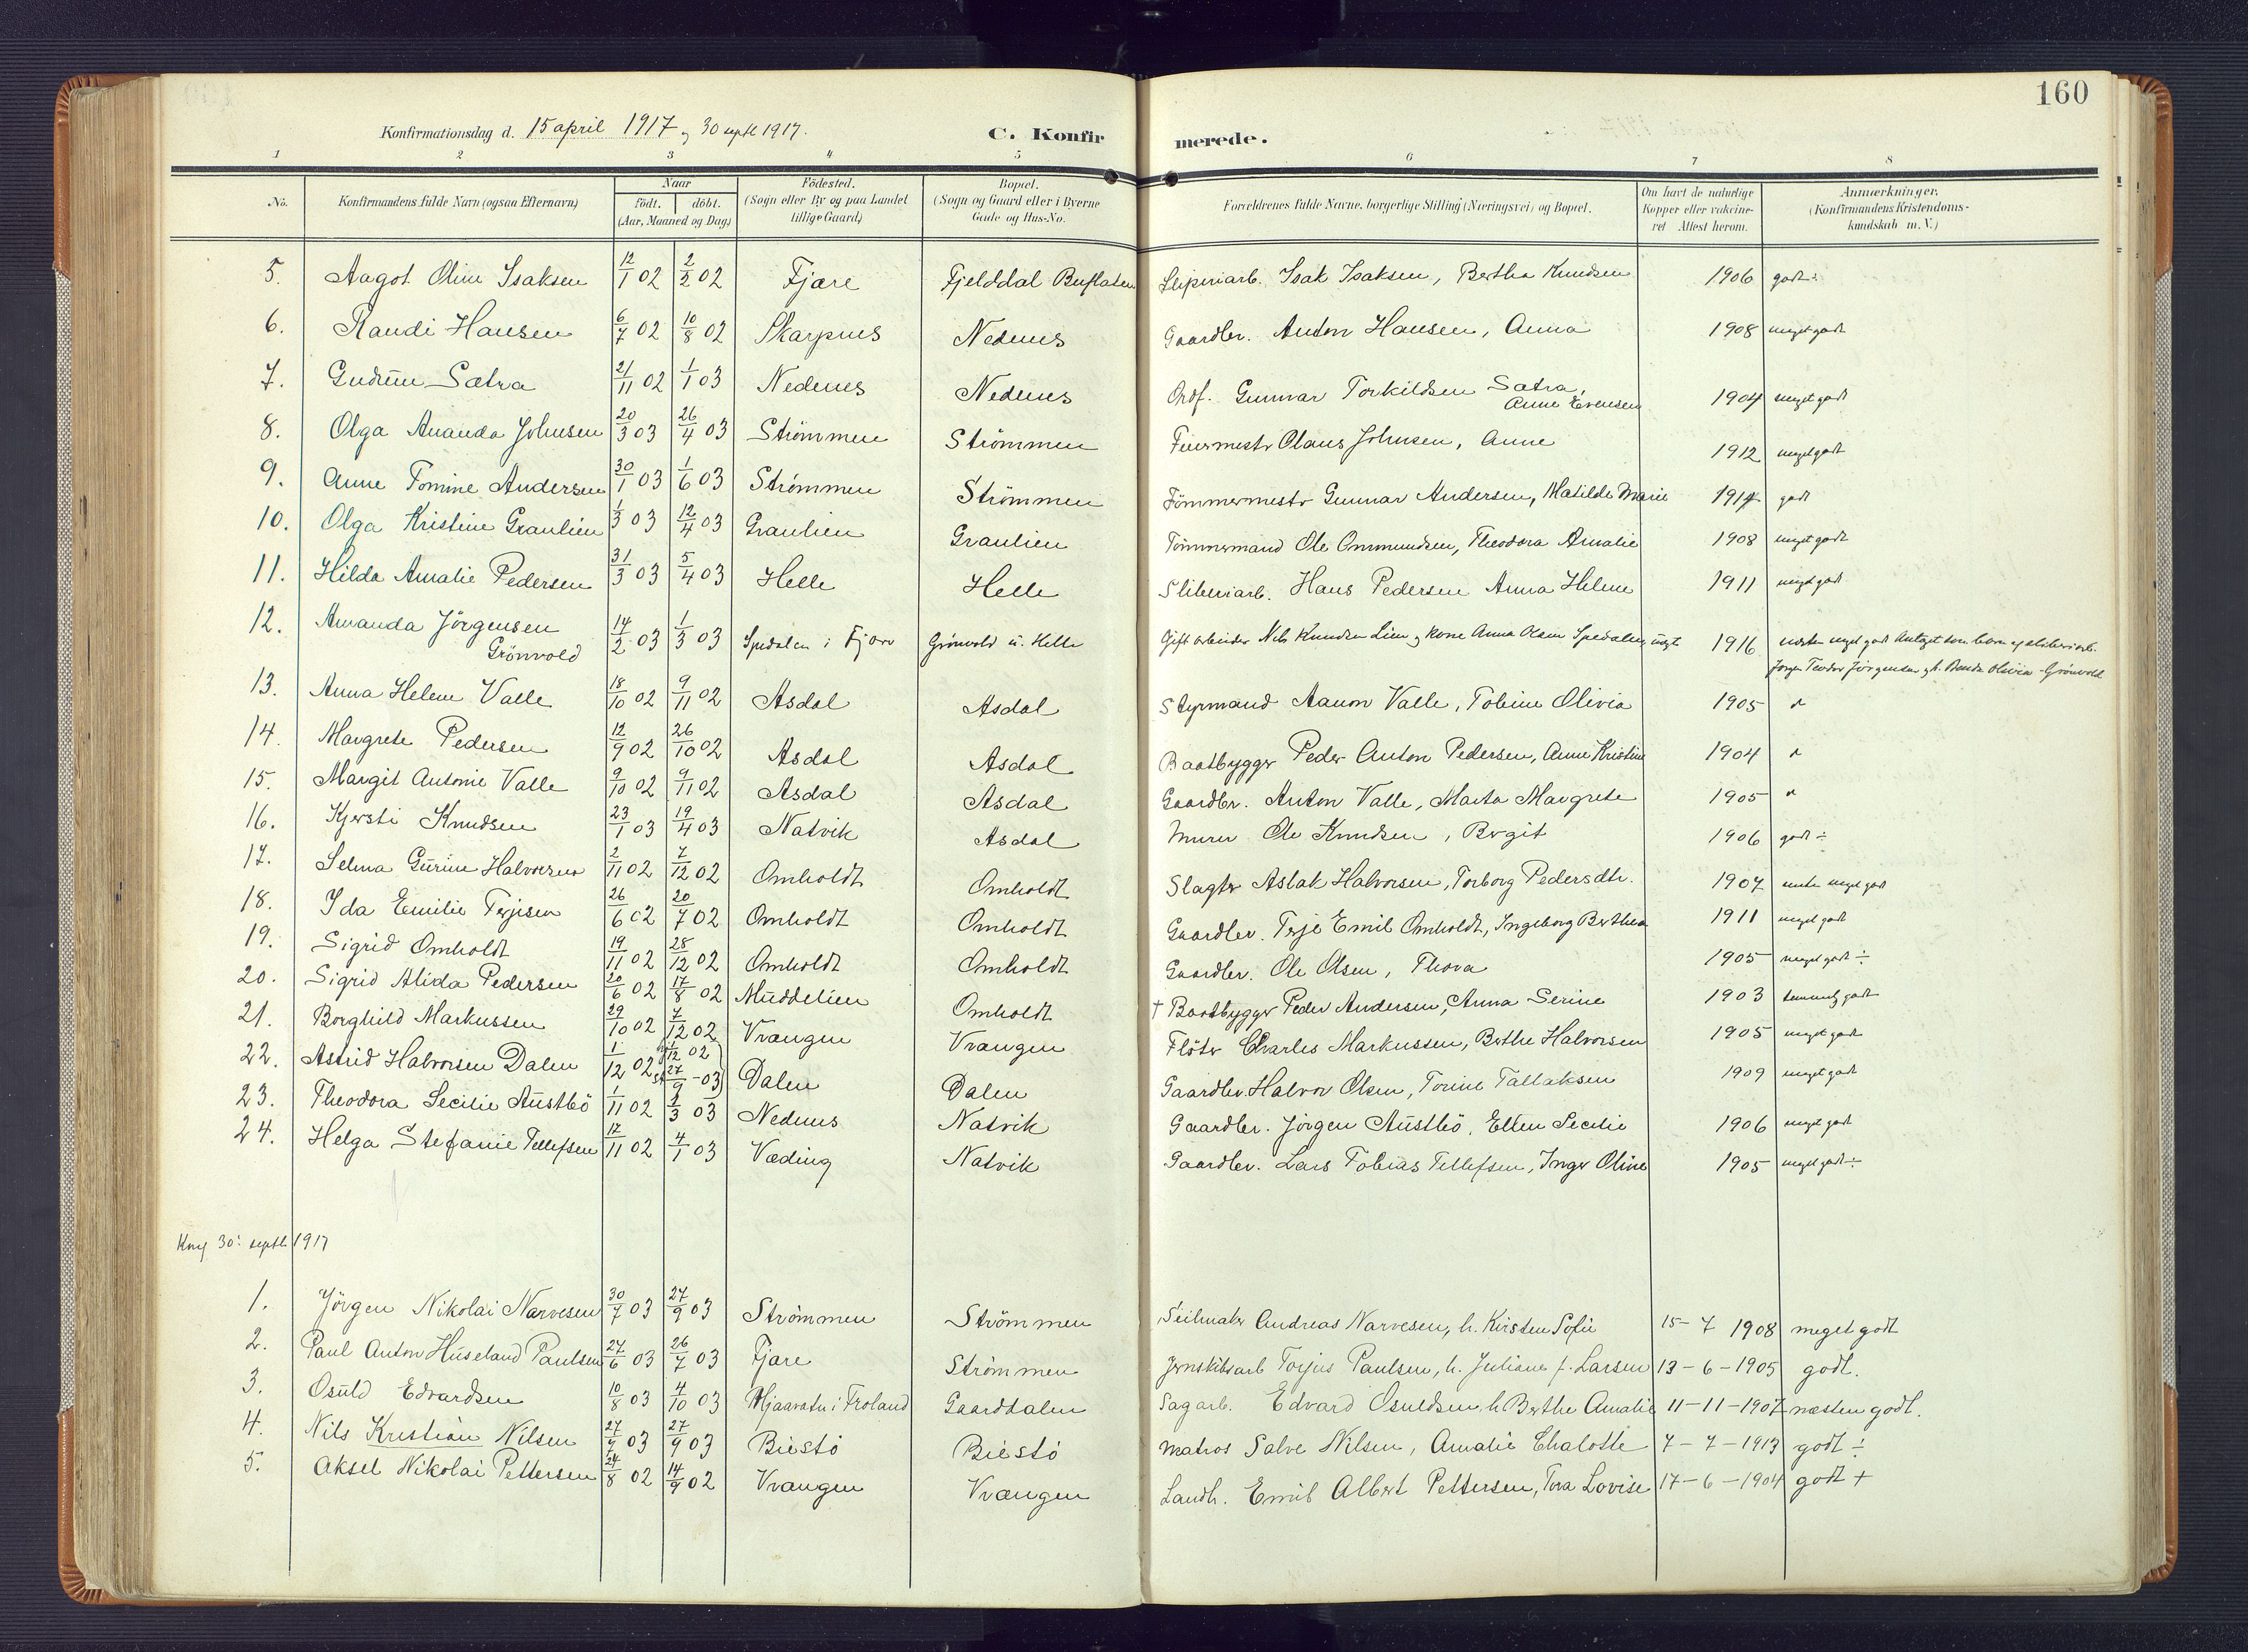 160
Konfirmationsdag d. 15 april 1917 og 30 septb 1917.
C. Konfirmerede.
1 2 3 4 5 6 7 8
No.
Konfirmandens fulde Navn (ogsaa Efternavn)
Naar
født. døbt.
(Aar, Maaned og Dag)
Födested.
(Sogn eller By og paa Landet
tillige Gaard)
Bopæl.
(Sogn og Gaard eller i Byerne
Gade og Hus-No.
Forældrenes fulde Navne, borgerlige Stilling (Næringsvei) og Bopæl.
Om havt de naturlige
Kopper eller vakcine-
ret Attest herom.
Anmærkninger.
(Konfirmandens Kristendoms-
kundskab m. V.)
5. Aagot Oline Isaksen 12/1 02 2/2 02 Fjære Fjelddal Buflaten Sliperiarb. Isak Isaksen, Bertha Knudsen 1906 godt ÷
6. Randi Hansen 6/7 02 10/8 02 Skarpnes Nedenes Gaardbr. Anton Hansen, Anna 1908 meget godt
7. Gudrun Sætra 21/11 02 1/1 03 Nedenes Nedenes Ordf. Gunnar Torkildsen Sætra, Anne Evensen 1904 meget godt
8. Olga Amanda Johnsen 20/3 03 26/4 03 Strömmen Strömmen Feiermestr Olaus Johnsen, Anne 1912 meget godt
9. Anne Tomine Andersen 30/1 03 1/6 03 Strömmen Strömmen Tömmermestr Gunnar Andersen, Matilde Marie 1917 godt
10. Olga Kristine Graulien 1/3 03 12/4 03 Graulien Graulien Tömmermand Ole Ommundsen, Theodora Amalie 1908 meget godt
11. Hilda Amalie Pedersen 31/3 03 5/4 03 Helle Helle Sliberiarb. Hans Pedersen Anna Helene 1911 meget godt
12. Amanda Jörgensen Grönvold 14/2 03 1/3 03 Spedalen i Fjære Grönvold u. Helle Gift arbeider Nils Knudsen Lien og kone Anna Olsen Spedalen, 1916 næsten meget godt Antaget som barn af sliberiarb.
Jörgen Teodor Jörgensen og h. Olivia Grönvold
13. Anna Helene Valle 18/10 02 9/11 02 Asdal Asdal Styrmand Aanon Valle, Tobine Olivia 1905 "
14. Margrete Pedersen 12/9 02 26/10 02 Asdal Asdal Baatbygger Peder Anton Pedersen, Anne Kristine 1904 "
15. Margit Antonie Valle 9/10 02 9/11 02 Asdal Asdal Gaardbr. Anton Valle, Marta Margrete 1905 "
16. Kjersti Knudsen 23/1 03 19/4 03 Natvik Asdal Murer Ole Knudsen, Birgit 1906 godt ÷
17. Selma Gurine Halvorsen 2/11 02 7/12 02 Omholdt Omholdt Slagter Aslak Halvorsen, Torborg Pedersdtr. 1907 næsten meget godt
18. Ida Emilie Terjesen 26/6 02 20/7 02 Omholdt Omholdt Gaardbr. Terje Emil Omholdt, Ingeborg Berthea 1911 meget godt
19. Sigrid Omholdt 19/11 02 28/12 02 Omholdt Omholdt Gaardbr. Ole Olsen, Thora 1905 meget godt ÷
20. Sigrid Alida Pedersen 20/6 02 17/8 02 Muddelien Omholdt † Baatbygger Peder Andersen, Anna Serine 1903 temmelig godt
21. Borghild Markussen 29/10 02 7/12 02 Vrængen Vrængen Flöter Charles Markussen, Berthe Halvorsen 1905 meget godt
22. Astrid Halvorsen Dalen 1/12 02 1/12 02 27/9 - 03 Dalen Dalen Gaardbr. Halvor Olsen, Torine Tallaksen 1909 meget godt
23. Theodora Secilie Austbö 1/11 02 1/3 03 Nedenes Natvik Gaardbr. Jörgen Austbö, Ellen Secilie 1906 meget godt
24. Helga Stefanie Tellefsen 17/11 02 4/1 03 Væding Natvik Gaardbr. Lars Tobias Tellefsen, Inger Oline 1905 meget godt ÷
30. septb. 1917
1. Jörgen Nikolai Narvesen 30/7 03 27/9 03 Strömmen Strömmen Seilmaker Andreas Narvesen, h. Kirsten Sofie 15-7 1908 meget godt
2. Paul Anton Huseland Paulsen 27/6 03 26/7 03 Fjære Strömmen Jernskibsarb Torjus Paulsen, h. Juliane f. Larsen 13-6-1905 godt.
3. Osuld Edvardsen 10/8 03 4/10 03 Mjaavatn i Froland Gaarddalen Sagarb. Edvard Osuldsen, h. Berthe Amalie 11-11-1907 næsten godt.
4. Nils Kristian Nilsen 27/7 03 27/9 03 Biestö Biestö Matros Salve Nilsen, Amalie Chalotte 7-7-1913 godt ÷
5. Aksel Nikolai Pettersen 24/8 02 14/9 02 Vrængen Vrængen Landh. Emil Albert Pettersen, Tora Lovise 17-6-1904 godt +